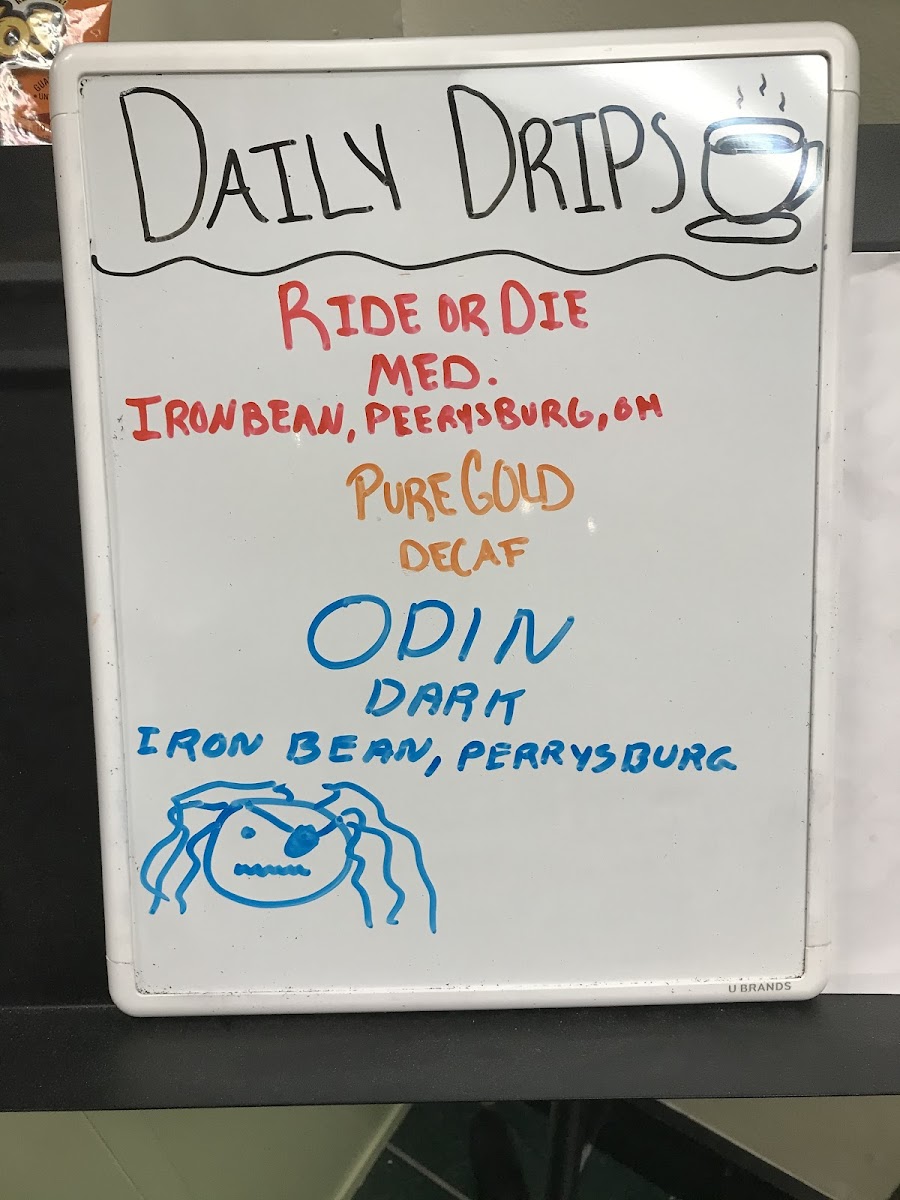 DAILY DRIPS
RIDE OR DIE
MED.
IRONBEAN, PEERYSBURG, OH
PURE GOLD
DECAF
ODIN
DARK
IRON BEAN, PERRYSBURG
U BRANDS